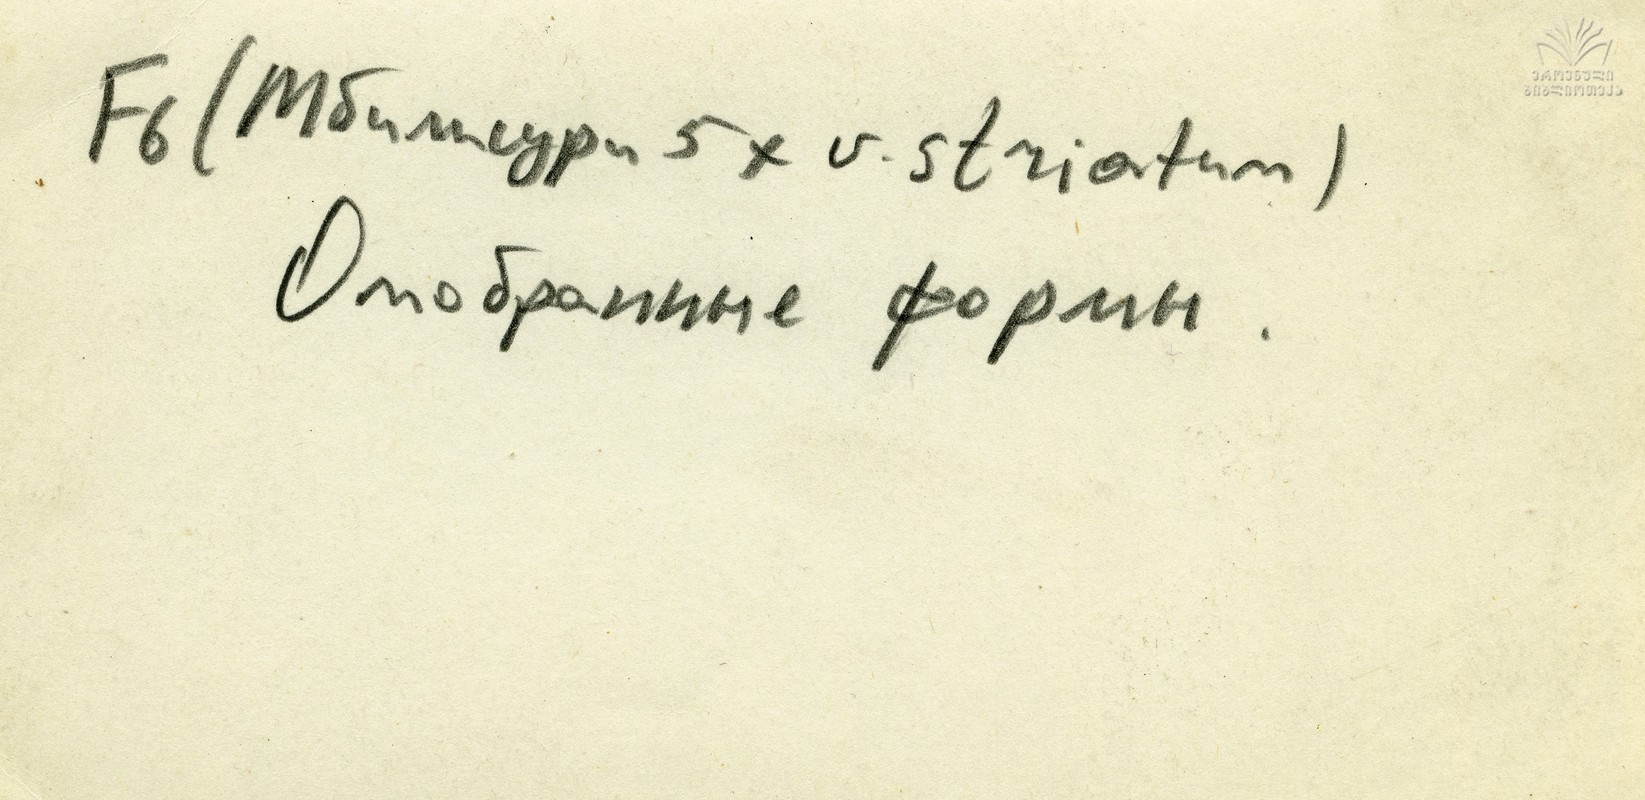 F6 (Тбилисури 5 x v. striatum)
Отобранные формы.
ეროვნული
ბიბლიოთეკა